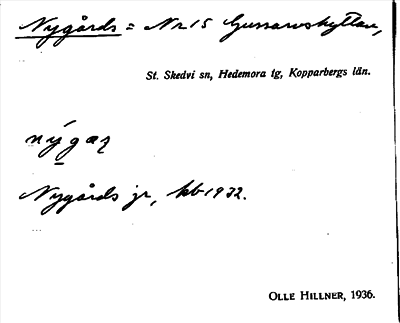 Nygårds = Nr 15 Gussarvshyttan,
St. Skedvi sn, Hedemora tg, Kopparbergs län.
Nygårds jr, kb 1932.
OLLE HILLNER, 1936.